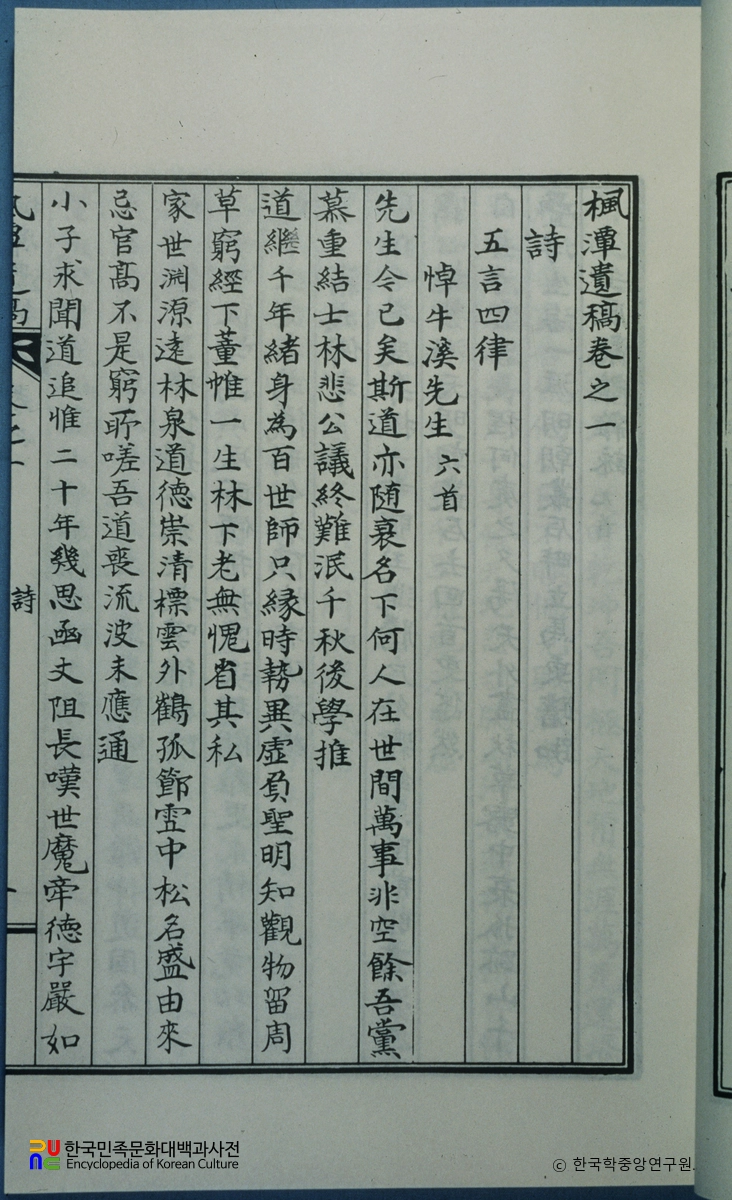 楓潭遺稿卷之一
詩
五言四律
悼牛溪先生 六首
先生今已矣斯道亦随衰名下何人在世間萬事非空餘吾黨
慕重結士林悲公議終難泯千秋後學推
道繼千年緒身為百世師只緣時勢異虛負聖明知觀物留周
草窮經下董帷一生林下老無愧省其私
家世淵源遠林泉道德崇清標雲外鶴孤節雪中松名盛由來
忌官高不是窮所嗟吾道喪流波未應通
小子求聞道追惟二十年幾思函丈阻長嘆世魔牽德宇嚴如
詩
한국민족문화대백과사전
Encyclopedia of Korean Culture
ⓒ 한국학중앙연구원.